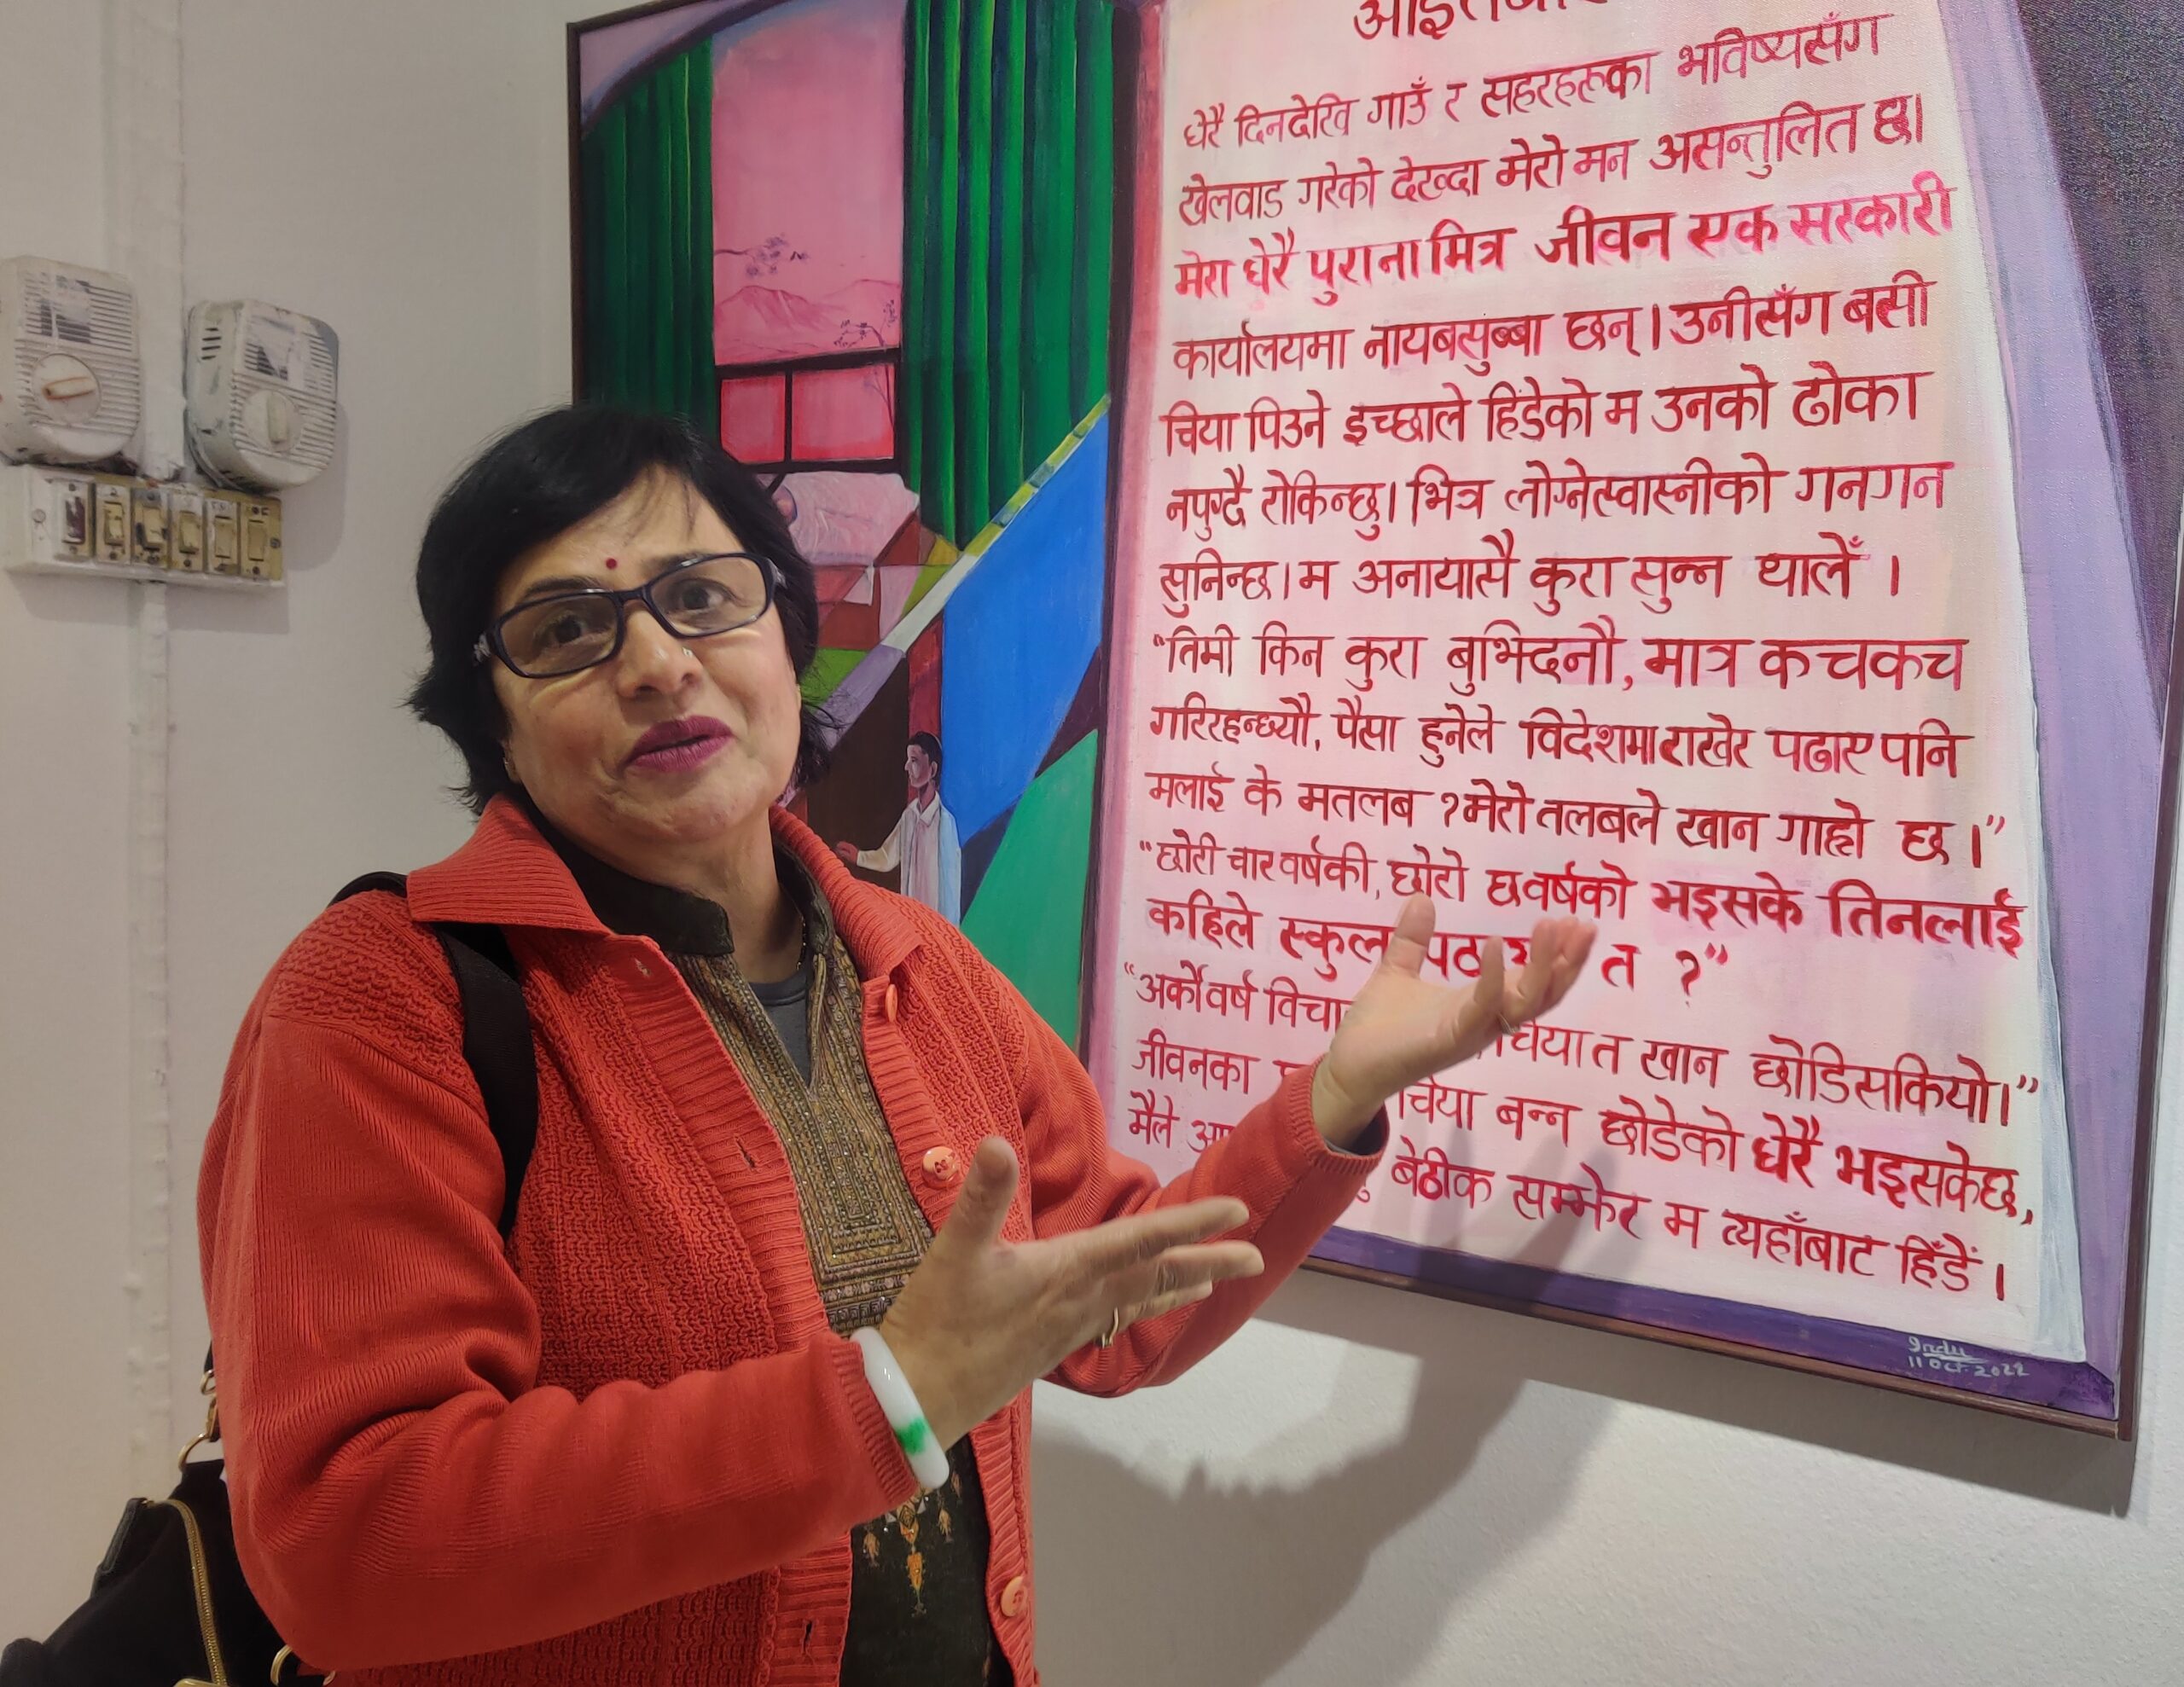 धेरै दिनदेखि गाउँ र सहरहरूका भविष्यसँग
खेलवाड गरेको देख्दा मेरो मन असन्तुलित छ।
मेरा धेरै पुराना मित्र जीवन एक सरकारी
कार्यालयमा नायबसुब्बा छन्। उनीसँग बसी
चिया पिउने इच्छाले हिंडेको म उनको ढोका
नपुग्दै रोकिन्छु। भित्र लोग्नेस्वास्नीको गनगन
सुनिन्छ। म अनायासै कुरा सुन्न थालेँ ।
“तिमी किन कुरा बुझ्दिनौ, मात्र कचकच
गरिरहन्छ्यौ, पैसा हुनेले विदेशमा राखेर पढाए पनि
मलाई के मतलब ? मेरो तलबले खान गाह्रो छ ।”
“छोरी चार वर्षकी, छोरो छ वर्षको भइसके तिनलाई
कहिले स्कुल त ?”
“अर्को वर्ष चियात खान छोडिसकियो।”
जीवनका चिया बन्न छोडेको धेरै भइसकेछ,
मैले बेठीक सम्झेर म त्यहाँबाट हिँडें ।
Indu
11 Oct 2022